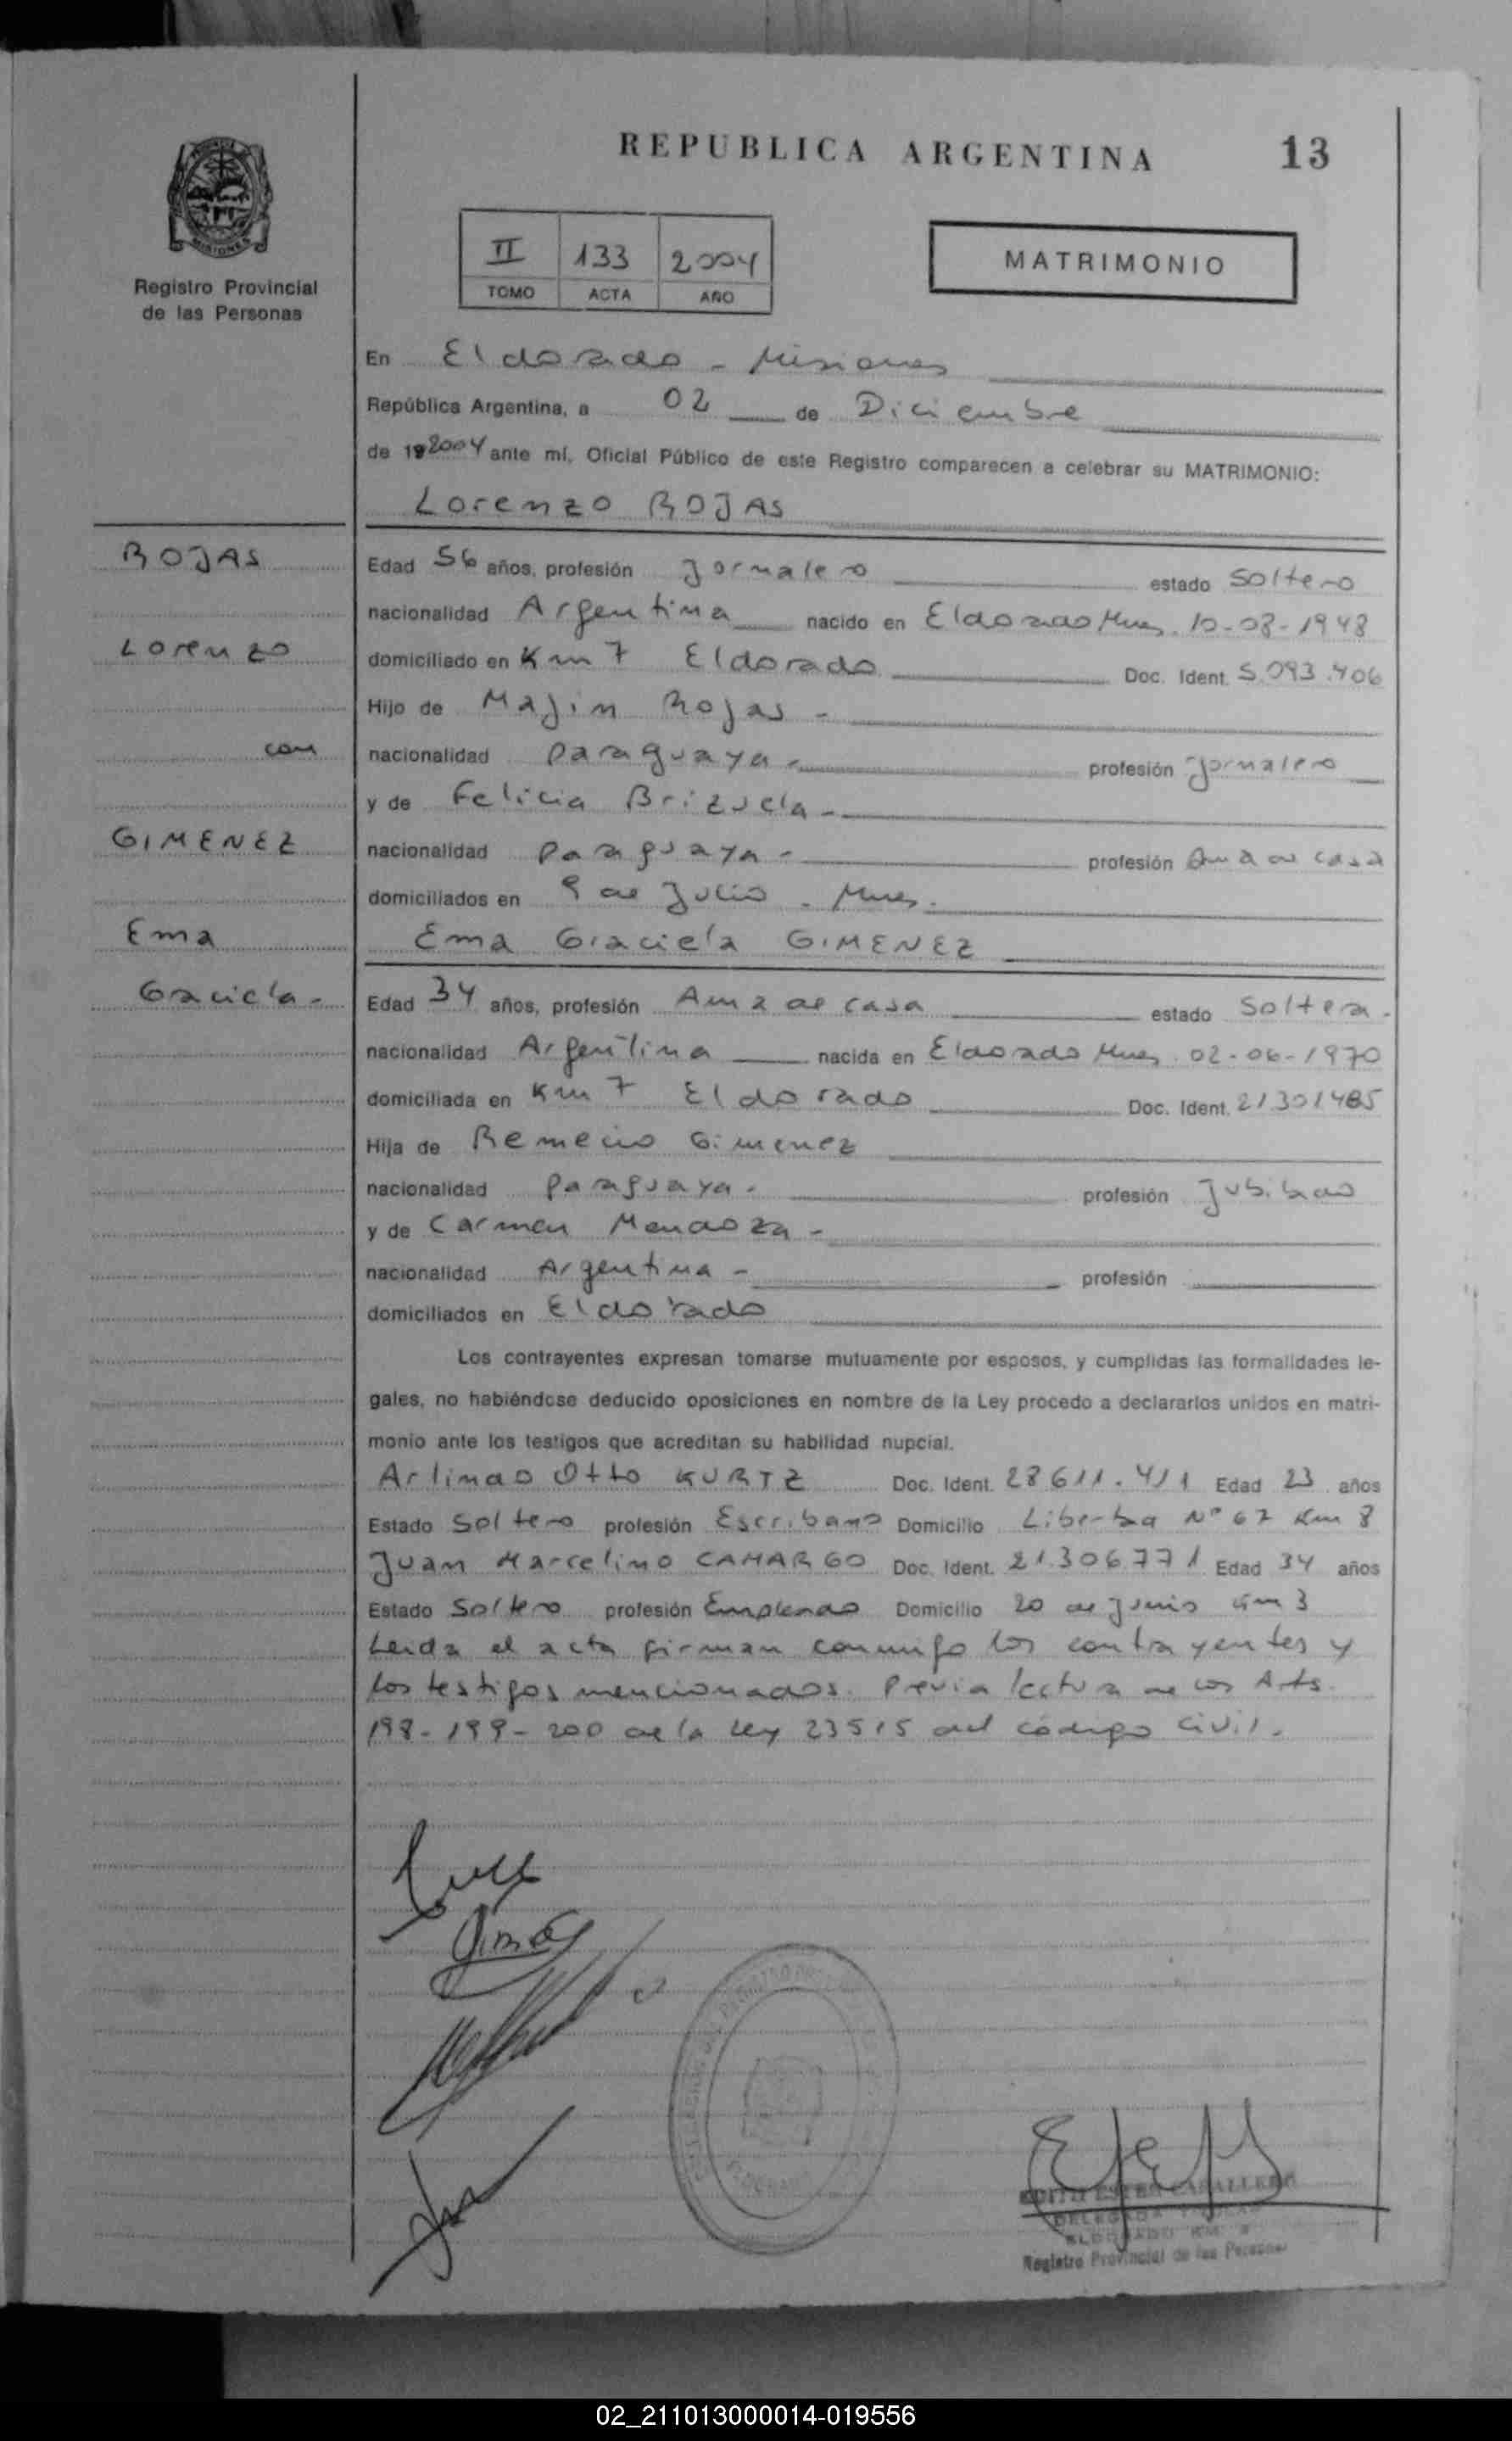 REPUBLICA ARGENTINA 13
MISIONES
Registro Provincial
de las Personas
II 133 2004
TOMO ACTA AÑO
MATRIMONIO
En Eldorado - Misiones
República Argentina, a 02 de Diciembre
de 19 2004 ante mí, Oficial Público de este Registro comparecen a celebrar su MATRIMONIO:
Lorenzo ROJAS
ROJAS
Lorenzo
con
GIMENEZ
Ema
Graciela -
Edad 56 años, profesión Jornalero estado Soltero
nacionalidad Argentina nacido en Eldorado Mnes. 10-08-1948
domiciliado en Km 7 Eldorado Doc. Ident. 5.093.406
Hijo de Majin Rojas -
nacionalidad Paraguaya - profesión Jornalero
y de Felicia Brizuela -
nacionalidad Paraguaya - profesión Ama de casa
domiciliados en 9 de Julio - Mnes.
Ema Graciela GIMENEZ
Edad 34 años, profesión Ama de casa estado Soltera -
nacionalidad Argentina nacida en Eldorado Mnes. 02-06-1970
domiciliada en Km 7 Eldorado Doc. Ident. 21301485
Hija de Remecio Gimenez
nacionalidad Paraguaya - profesión Jubilado
y de Carmen Mendoza -
nacionalidad Argentina - profesión
domiciliados en Eldorado
Los contrayentes expresan tomarse mutuamente por esposos, y cumplidas las formalidades le-
gales, no habiéndose deducido oposiciones en nombre de la Ley procedo a declararlos unidos en matri-
monio ante los testigos que acreditan su habilidad nupcial.
Arlindo Otto KURTZ Doc. Ident. 28611.411 Edad 23 años
Estado Soltero profesión Escribano Domicilio Libertad Nº 67 Km 8
Juan Marcelino CAMARGO Doc. Ident. 21.306.771 Edad 34 años
Estado Soltero profesión Empleado Domicilio 20 de Junio Km 3
Leida el acta firman conmigo los contrayentes y
los testigos mencionados. Previa lectura de los Arts.
198-199-200 de la Ley 23515 del código civil.
EDITH ESTER CABALLERO
DELEGADA TITULAR
ELDORADO KM
Registro Provincial de las Personas
02_211013000014-019556